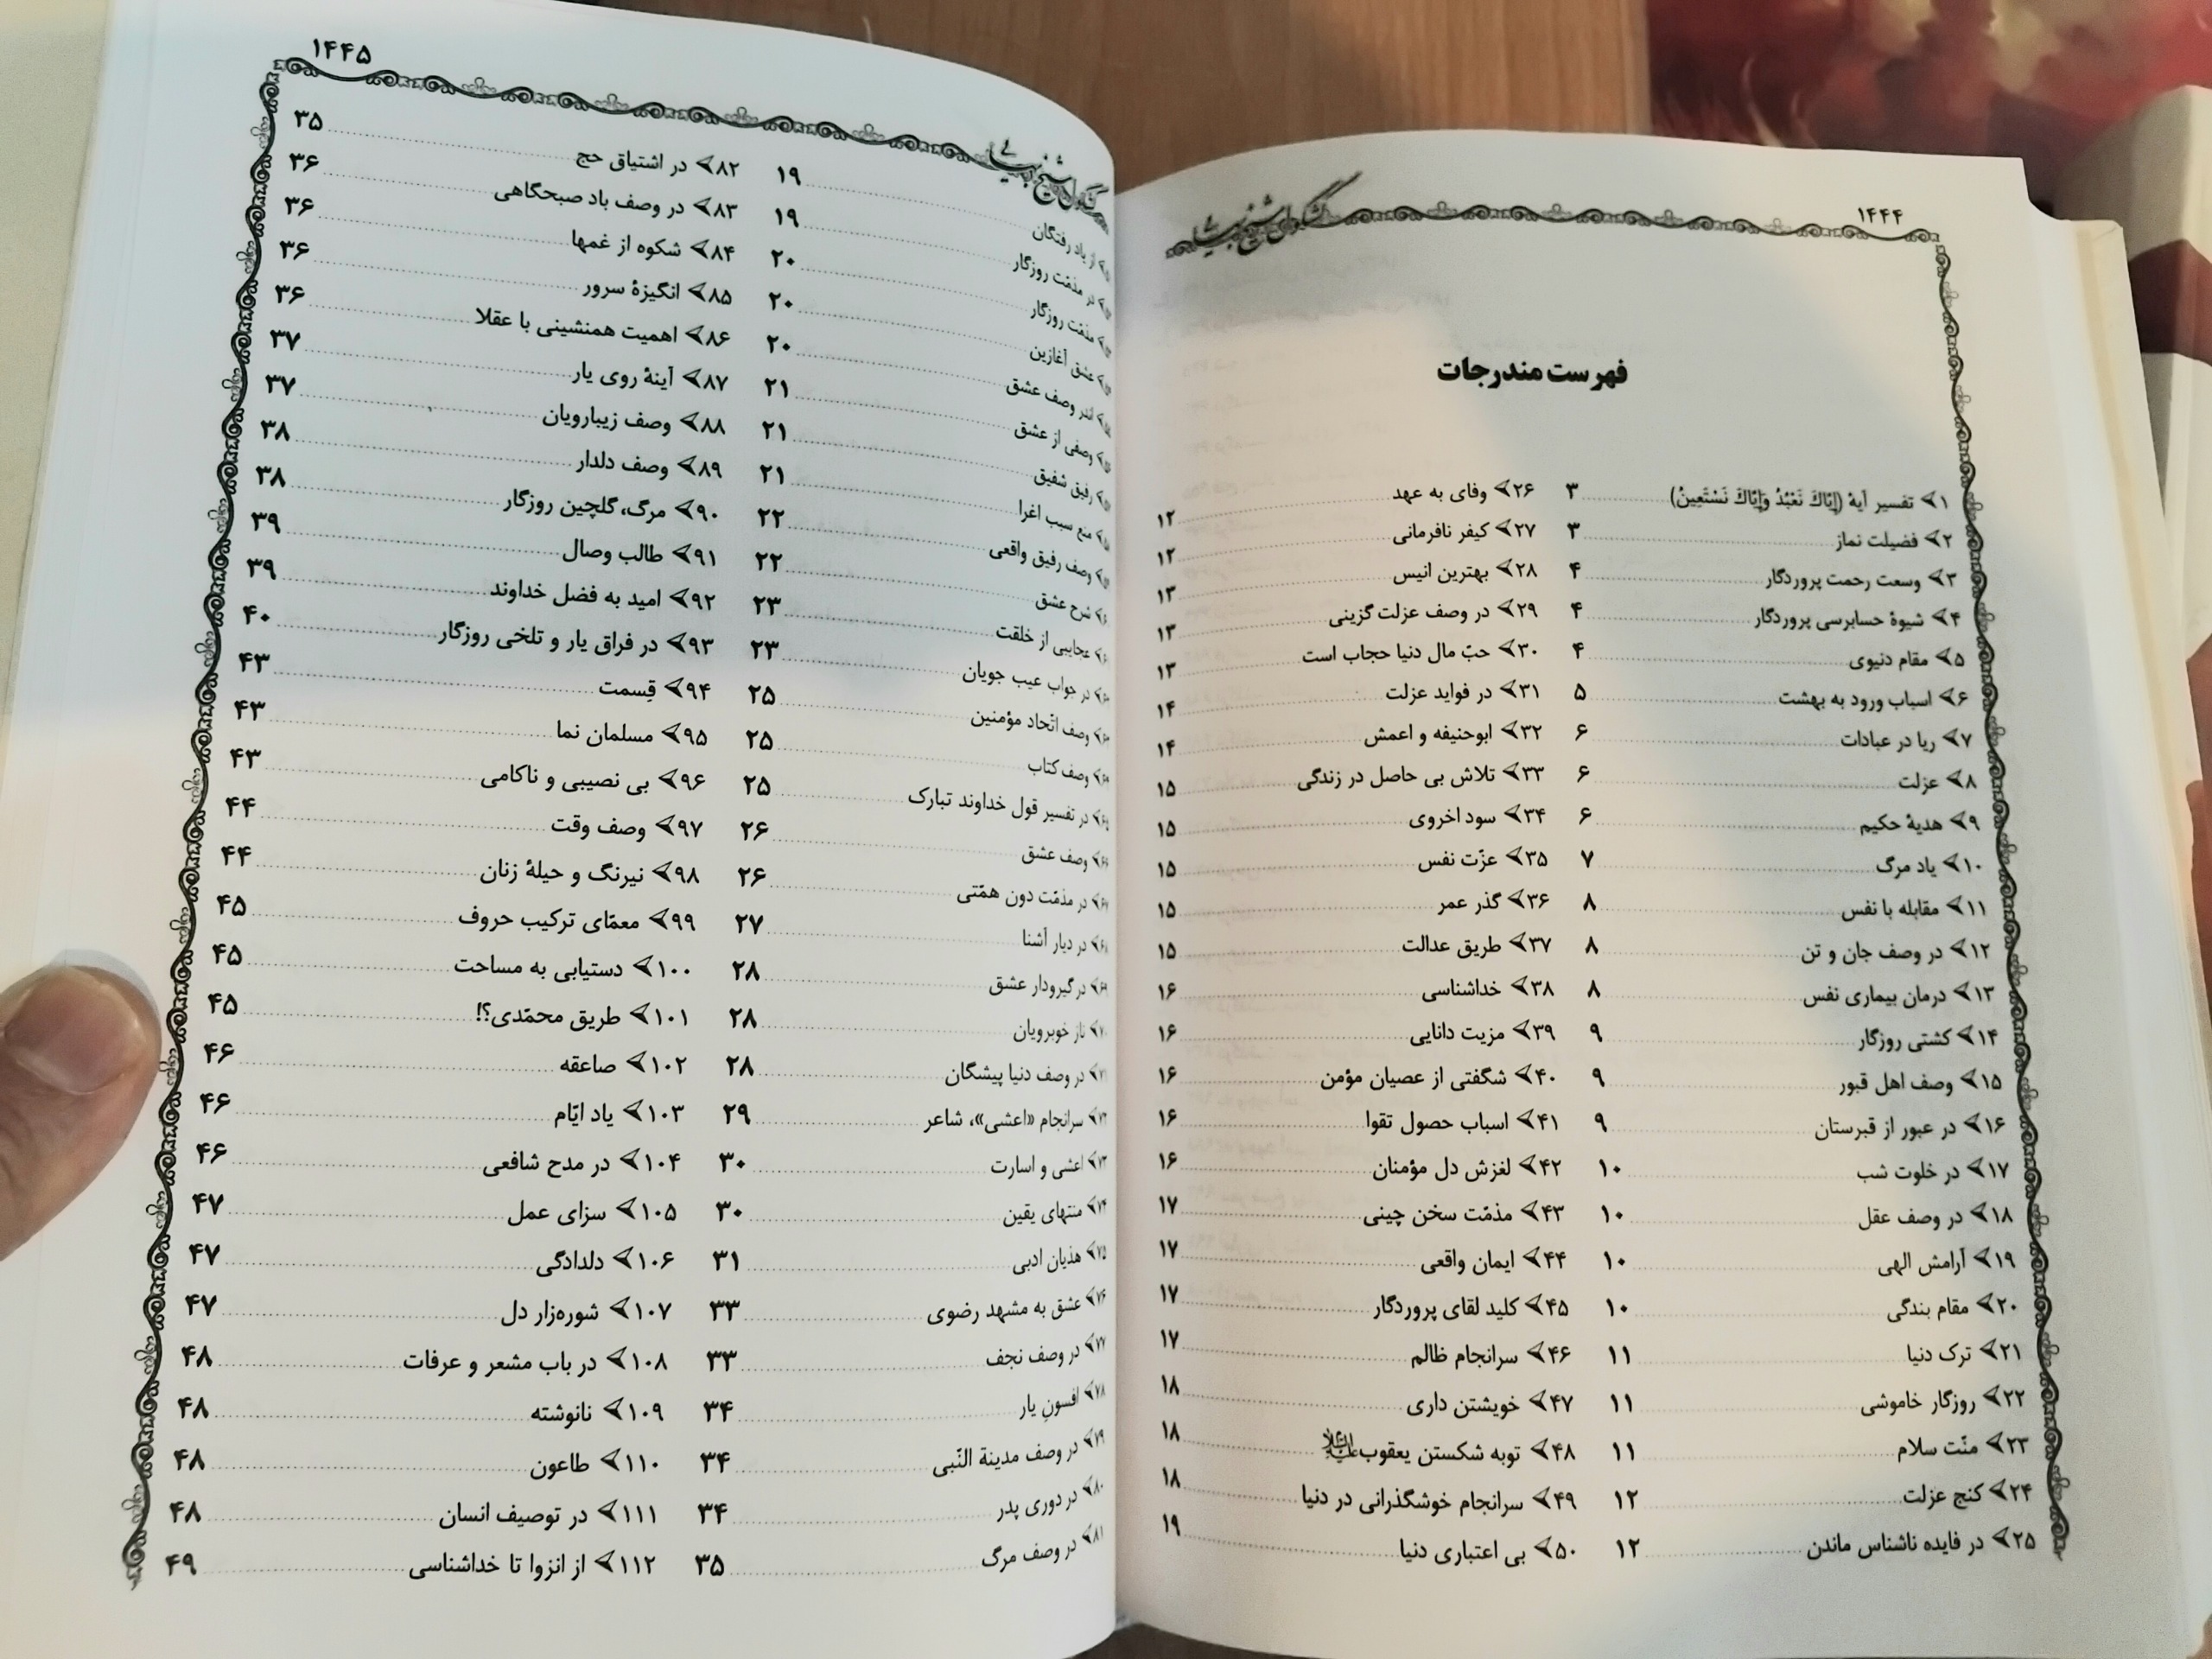 ۱۴۴۴
کشکول شیخ بهایی
فهرست مندرجات
۱ تفسیر آیهٔ (إِيَّاكَ نَعْبُدُ وَإِيَّاكَ نَسْتَعِينُ) ۳
۲ فضیلت نماز ۳
۳ وسعت رحمت پروردگار ۴
۴ شیوهٔ حسابرسی پروردگار ۴
۵ مقام دنیوی ۴
۶ اسباب ورود به بهشت ۵
۷ ریا در عبادات ۶
۸ عزلت ۶
۹ هدیهٔ حکیم ۶
۱۰ یاد مرگ ۷
۱۱ مقابله با نفس ۸
۱۲ در وصف جان و تن ۸
۱۳ درمان بیماری نفس ۸
۱۴ کشتی روزگار ۹
۱۵ وصف اهل قبور ۹
۱۶ در عبور از قبرستان ۹
۱۷ در خلوت شب ۱۰
۱۸ در وصف عقل ۱۰
۱۹ آرامش الهی ۱۰
۲۰ مقام بندگی ۱۰
۲۱ ترک دنیا ۱۱
۲۲ روزگار خاموشی ۱۱
۲۳ منّت سلام ۱۱
۲۴ کنج عزلت ۱۲
۲۵ در فایده ناشناس ماندن ۱۲
۲۶ وفای به عهد ۱۲
۲۷ کیفر نافرمانی ۱۲
۲۸ بهترین انیس ۱۳
۲۹ در وصف عزلت گزینی ۱۳
۳۰ حبّ مال دنیا حجاب است ۱۳
۳۱ در فواید عزلت ۱۴
۳۲ ابوحنیفه و اعمش ۱۴
۳۳ تلاش بی حاصل در زندگی ۱۵
۳۴ سود اخروی ۱۵
۳۵ عزّت نفس ۱۵
۳۶ گذر عمر ۱۵
۳۷ طریق عدالت ۱۵
۳۸ خداشناسی ۱۶
۳۹ مزیت دانایی ۱۶
۴۰ شگفتی از عصیان مؤمن ۱۶
۴۱ اسباب حصول تقوا ۱۶
۴۲ لغزش دل مؤمنان ۱۶
۴۳ مذمّت سخن چینی ۱۷
۴۴ ایمان واقعی ۱۷
۴۵ کلید لقای پروردگار ۱۷
۴۶ سرانجام ظالم ۱۷
۴۷ خویشتن داری ۱۸
۴۸ توبه شکستن یعقوب ۱۸
۴۹ سرانجام خوشگذرانی در دنیا ۱۸
۵۰ بی اعتباری دنیا ۱۹
کشکول شیخ بهایی
۱۴۴۵
از یاد رفتگان ۱۹
در مذمّت روزگار ۱۹
مذمّت روزگار ۲۰
عشق آغازین ۲۰
اندر وصف عشق ۲۰
وصفی از عشق ۲۱
رفیق شفیق ۲۱
منع سبب اغرا ۲۱
وصف رفیق واقعی ۲۲
شرح عشق ۲۲
عجایبی از خلقت ۲۳
در جواب عیب جویان ۲۳
وصف اتّحاد مؤمنین ۲۵
وصف کتاب ۲۵
در تفسیر قول خداوند تبارک ۲۵
وصف عشق ۲۶
در مذمّت دون همّتی ۲۶
در دیار آشنا ۲۷
در گیرودار عشق ۲۸
ناز خوبرویان ۲۸
در وصف دنیا پیشگان ۲۸
۷۲ سرانجام «اعشی»، شاعر ۲۹
۷۳ اعشی و اسارت ۳۰
۷۴ منتهای یقین ۳۰
۷۵ هذیان ادبی ۳۱
۷۶ عشق به مشهد رضوی ۳۳
۷۷ در وصف نجف ۳۳
۷۸ افسونِ یار ۳۴
۷۹ در وصف مدینة النّبی ۳۴
۸۰ در دوری پدر ۳۴
۸۱ در وصف مرگ ۳۵
۸۲ در اشتیاق حج ۳۵
۸۳ در وصف باد صبحگاهی ۳۶
۸۴ شکوه از غمها ۳۶
۸۵ انگیزهٔ سرور ۳۶
۸۶ اهمیت همنشینی با عقلا ۳۶
۸۷ آینهٔ روی یار ۳۷
۸۸ وصف زیبارویان ۳۷
۸۹ وصف دلدار ۳۸
۹۰ مرگ، گلچین روزگار ۳۸
۹۱ طالب وصال ۳۹
۹۲ امید به فضل خداوند ۳۹
۹۳ در فراق یار و تلخی روزگار ۴۰
۹۴ قِسمت ۴۳
۹۵ مسلمان نما ۴۳
۹۶ بی نصیبی و ناکامی ۴۳
۹۷ وصف وقت ۴۴
۹۸ نیرنگ و حیلهٔ زنان ۴۴
۹۹ معمّای ترکیب حروف ۴۵
۱۰۰ دستیابی به مساحت ۴۵
۱۰۱ طریق محمّدی؟! ۴۵
۱۰۲ صاعقه ۴۶
۱۰۳ یاد ایّام ۴۶
۱۰۴ در مدح شافعی ۴۶
۱۰۵ سزای عمل ۴۷
۱۰۶ دلدادگی ۴۷
۱۰۷ شوره‌زار دل ۴۷
۱۰۸ در باب مشعر و عرفات ۴۸
۱۰۹ نانوشته ۴۸
۱۱۰ طاعون ۴۸
۱۱۱ در توصیف انسان ۴۸
۱۱۲ از انزوا تا خداشناسی ۴۹